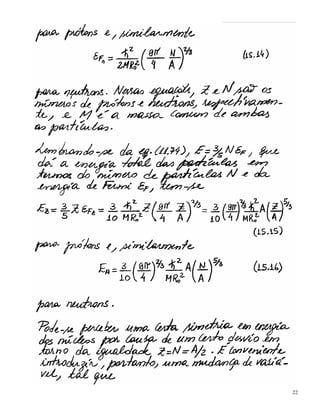 para prótons e, similarmente
ε_Fn = ħ²/2MR₀² (9π/4 N/A)^2/3 (15.14)
para neutrons. Nessas equações, Z e N são os
números de prótons e neutrons, respectivamen-
te, e M é a massa comum de ambas
as partículas.
Lembrando-se da eq. (11.74), E = 3/5 N E_F, que
dá a energia total das partículas em
termos do número de partículas N e da
energia de Fermi E_F, tem-se
E_B = 3/5 Z ε_Fz = 3/10 ħ²/MR₀² Z (9π/4 Z/A)^2/3 = 3/10 (9π/4)^2/3 ħ²/MR₀² A (Z/A)^5/3
(15.15)
para prótons e, similarmente
E_n = 3/10 (9π/4)^2/3 ħ²/MR₀² A (N/A)^5/3 (15.16)
para neutrons.
Pode-se perceber uma certa simetria em energia
dos núcleos por causa de um certo desvio em
torno da igualdade, Z = N = A/2. É conveniente
introduzir, portanto, uma mudança de variá-
vel, tal que
22